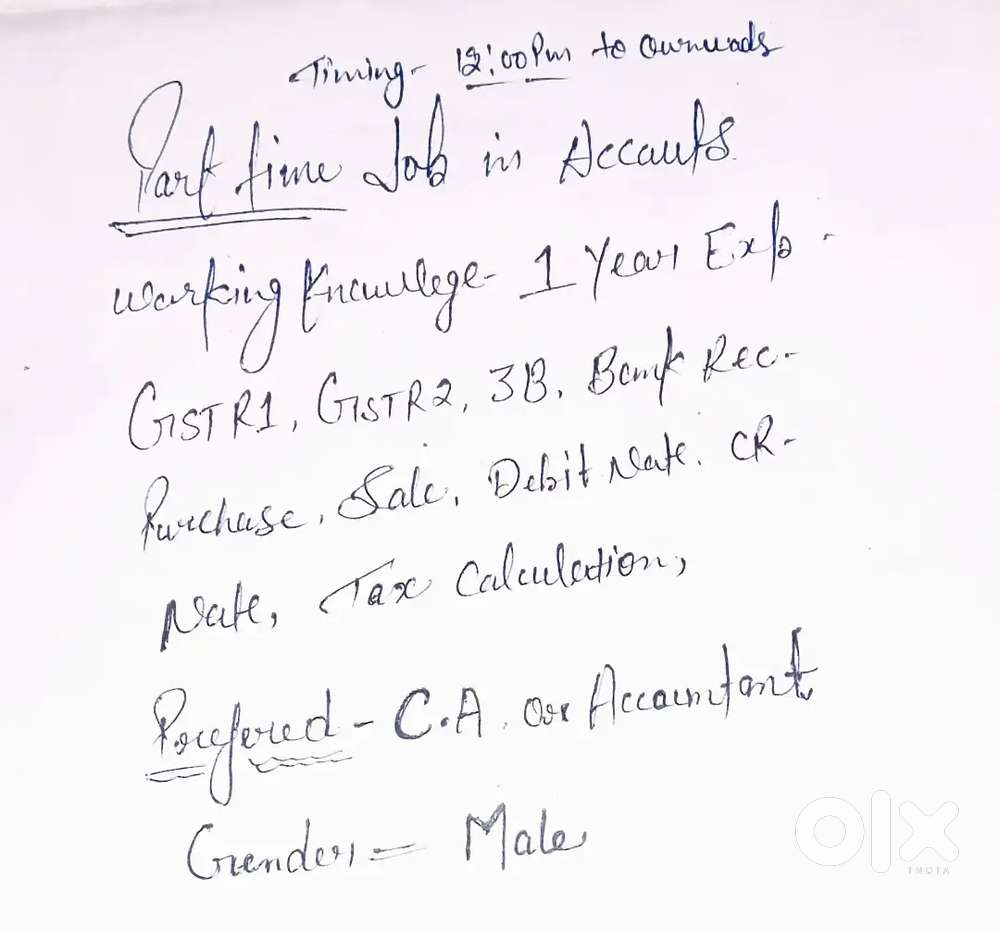 Timing - 12:00 Pm to Ownwads
Part time Job in Accauts.
Warking Knawlege - 1 Year Exp.
GSTR1, GSTR2, 3B, Bank Rec-
Purchase, Sale, Debit Nate. CR-
Nate, Tax Calculation,
Prefered - C.A. or Accountant
Gender = Male
olx
INDIA